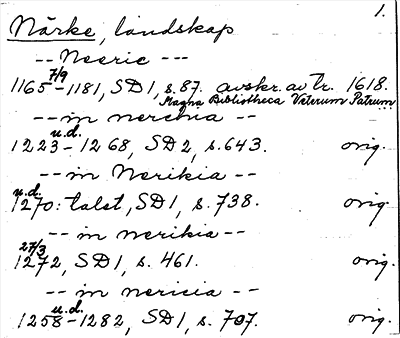 Närke, landskap 1.
-- Neeric ---
7/9
1165-1181, SD1, s. 87. avskr. av tr. 1618.
Magna Bibliotheca Veterum Patrum
-- in nerchia --
u.d.
1223-1268, SD2, s. 643. orig.
-- in Nerikia --
u.d.
1270: talet, SD1, s. 738. orig.
-- in nerikia --
27/3
1272, SD1, s. 461. orig.
-- in nericia --
u.d.
1258-1282, SD1, s. 707. orig.